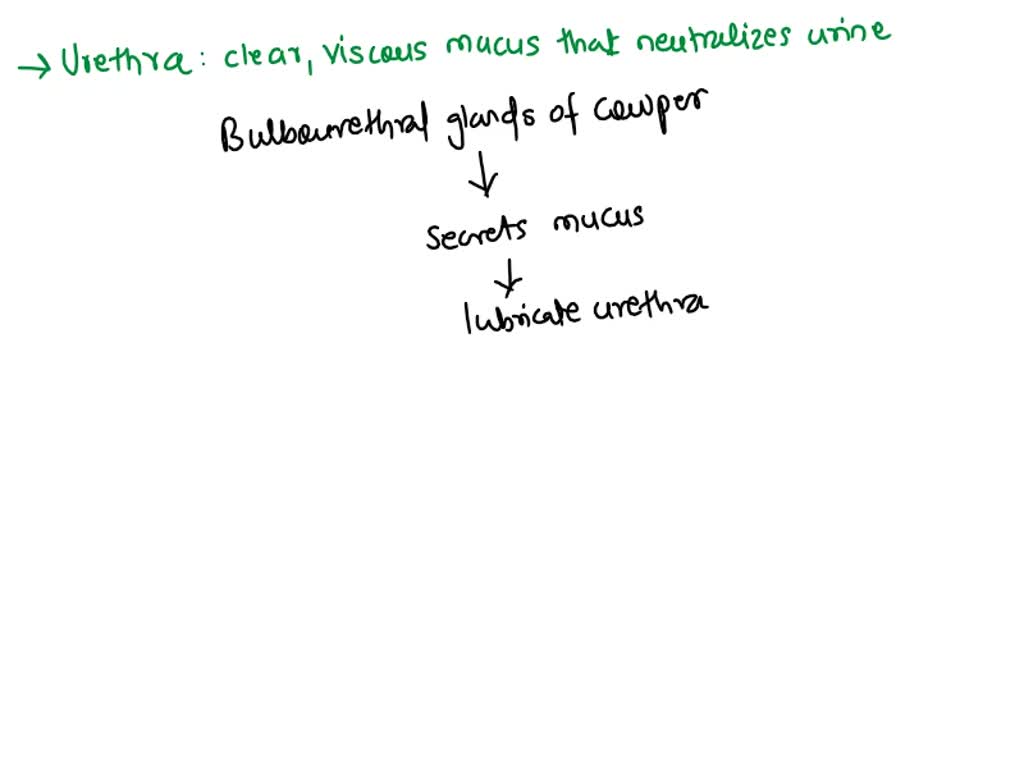 → Urethra: clear, viscous mucus that neutralizes urine
Bulbourethral glands of cowper
↓
secrets mucus
↓
lubricate urethra